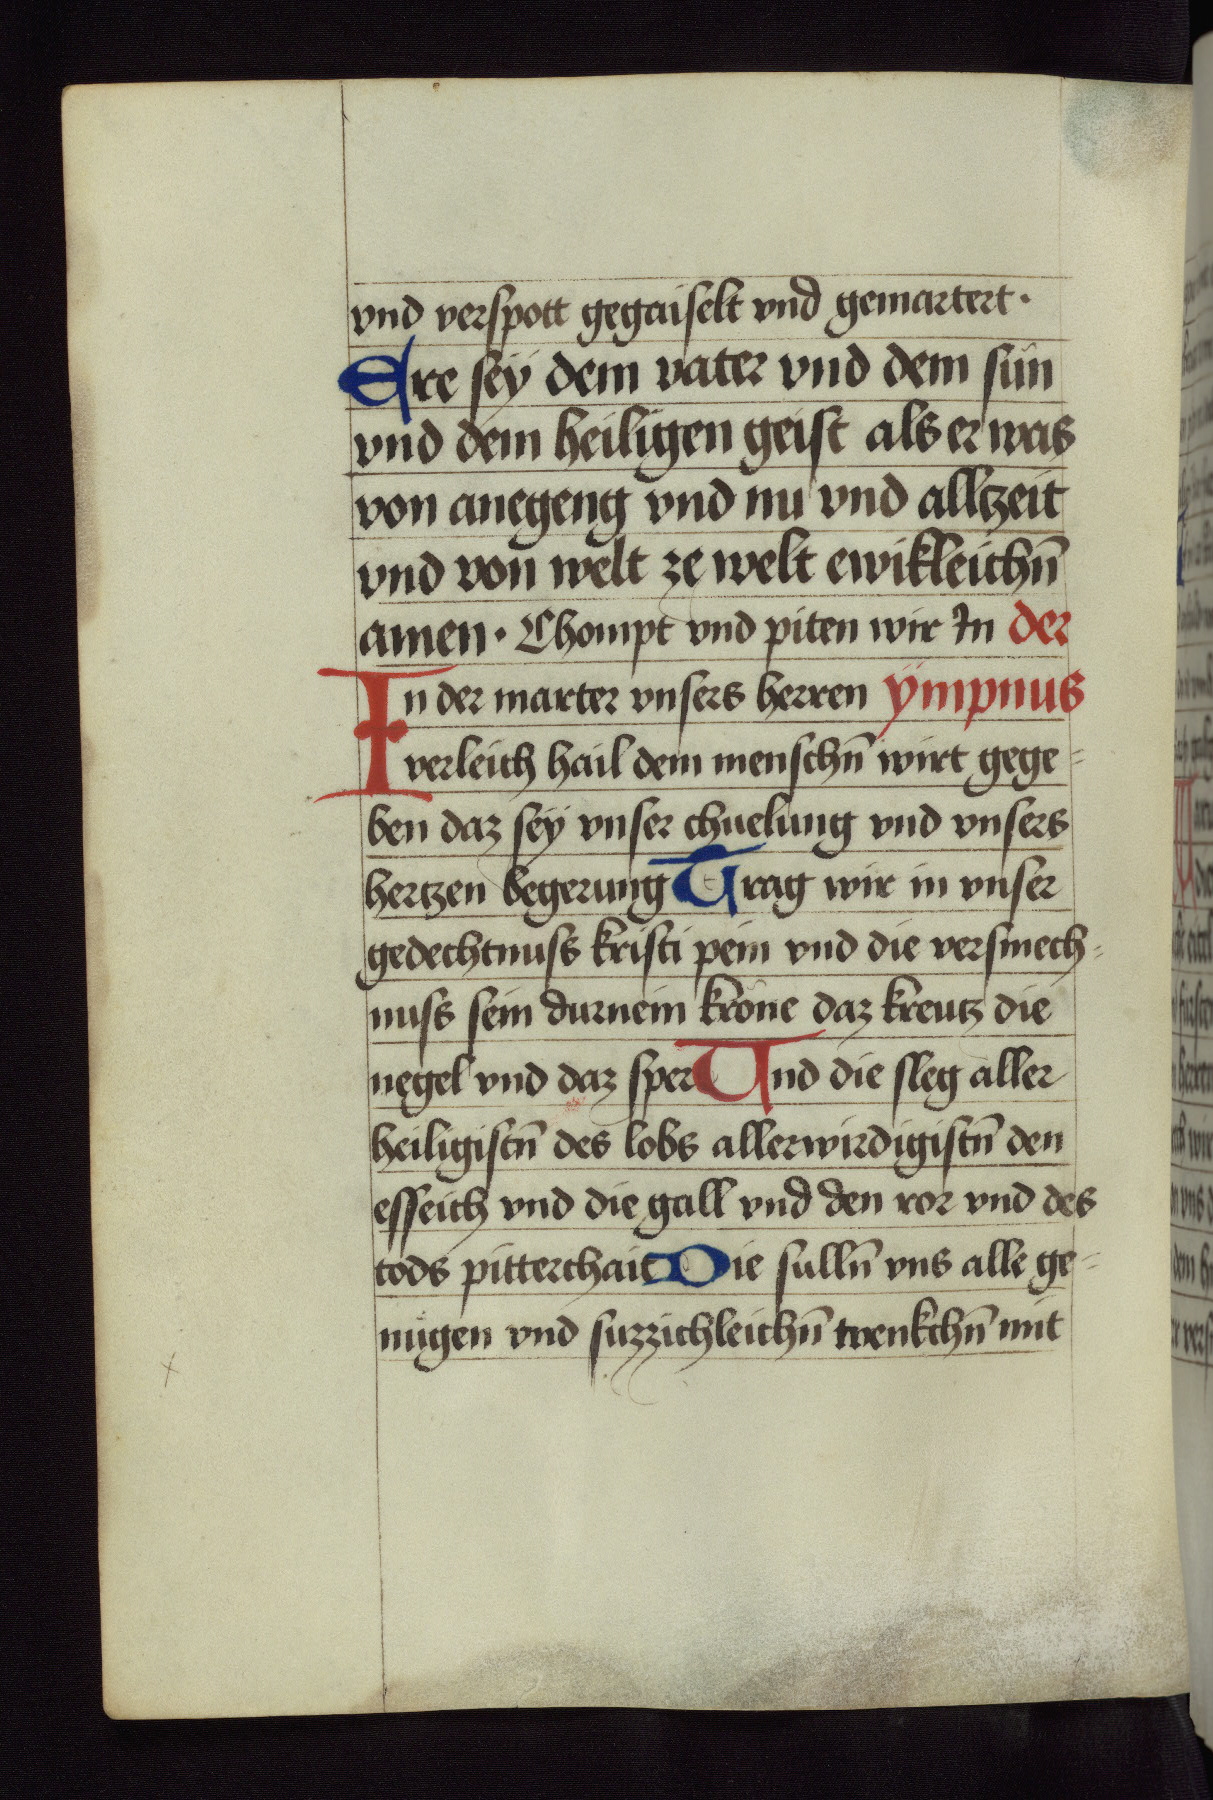 vnd verspott gegaiselt vnd gemartert·
Ere sey dem vater vnd dem sun
vnd dem heiligen geist als er was
von anegeng vnd nu vnd allczeit
vnd von welt ze welt ewikleichn̄
amen· Chompt vnd piten wir In der
In der marter vnsers herren ympnus
verleich hail dem menschn̄ wirt gege-
ben daz sey vnser chuelung vnd vnsers
hertzen begerung Trag wir in vnser
gedechtnuss kristi pein vnd die versmech-
nuss sein durnein krone daz kreutz die
negel vnd daz sper Und die sleg aller
heiligistn̄ des lobs allerwirdigistn̄ den
esseich vnd die gall vnd den ror vnd des
tods pitterchait Die sulln̄ vns alle ge-
nugen vnd suzzichleichn̄ trenkchn̄ mit